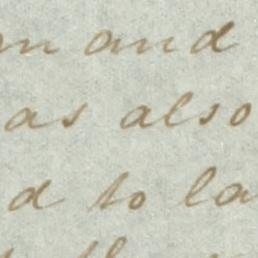 and
as also
to la